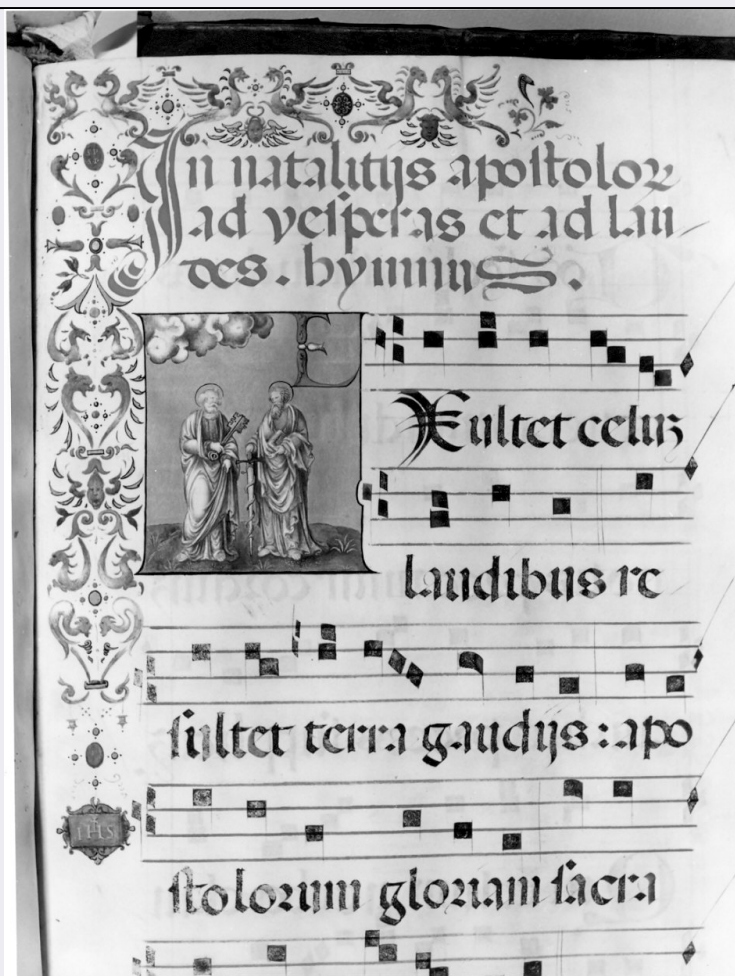 In natalitijs apostoloꝝ
ad vesperas et ad lau
des. hymnus.
E
Xultet celuꝫ
laudibus re
sultet terra gaudijs: apo
stolorum gloriam sacra
IHS